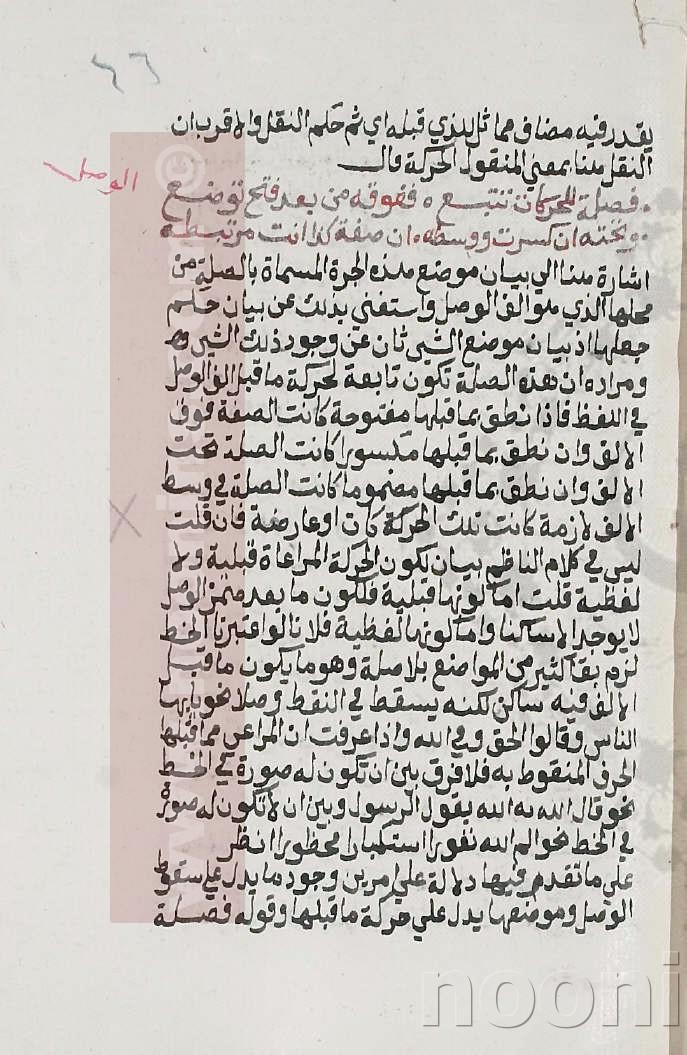 ٤٦
يقدر فيه مضاف مماثل للذي قبله اي ثم حكم النقل والاقرب ان
النقل هنا بمعني المنقول الحركة قال
الوصل
فصلة للحركات تتبع ففوقه من بعد فتح توضع
وتحته ان كسرت ووسطه ان صفة كذا انت مرتبطه
اشارة هنا الي بيان موضع هذه الجرة المسماة بالصلة من
محلها الذي هو الف الوصل واستغني بذلك عن بيان حكم
جعلها اذ بيان موضع الشي ثان عن وجود ذلك الشي وهـ
ومراده ان هذه الصلة تكون تابعة لحركة ما قبل الف الوصل
في اللفظ فاذا نطق بما قبلها مفتوحة كانت الصفة فوق
الالف وان نطق بما قبلها مكسورا كانت الصلة تحت
الالف وان نطق بما قبلها مضموما كانت الصلة في وسط
الالف لازمة كانت تلك الحركة كان او عارضة فان قلت
ليس في كلام الناظم بيان لكون الحركة المراعاة قبلية ولا
لفظية قلت اما كونها قبلية فلكون ما بعد همز الوصل
لا يوجد الا ساكنا واما كونها لفظية فلانا لو اعتبرنا الخط
لزم بقا كثير من المواضع بلا صلة وهو ما يكون ما قبل
الالف فيه ساكن لكنه يسقط في النقط وصلا نحو يايها
الناس وقالوا الحق وفي الله واذا عرفت ان المراعي مما قبلها
الحرف المنقوط به فلا فرق بين ان تكون له صورة في الخط
نحو قال الله به الله يقول الرسول وبين ان لا تكون له صورة
في الخط نحو الم الله نفورا استكبارا محظورا انظر
علي ما تقدم فيها دلالة علي امرين وجود ما يدل علي سقوط
الوصل وموضعها يدل علي حركة ما قبلها وقوله فصلة
nooni